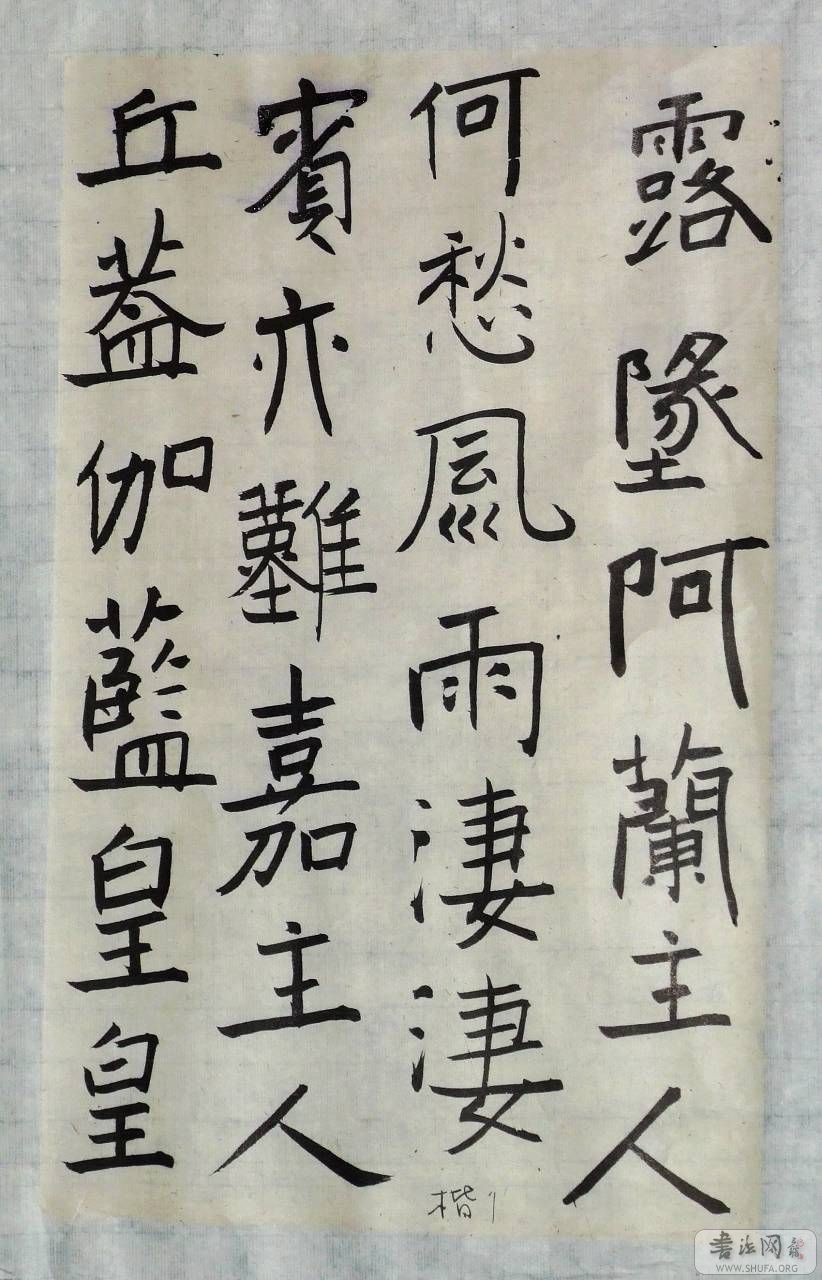 露墜阿蘭主人
何愁風雨淒淒
賓亦難嘉主人
丘蓋伽藍皇皇
楷1
書法网
WWW.SHUFA.ORG